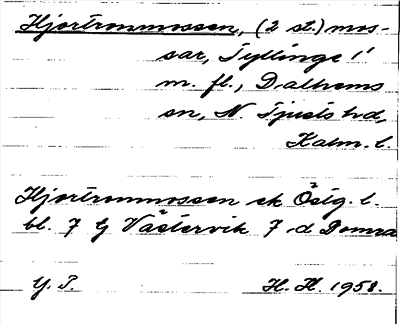 Hjortronmossen, (2 st.) mos-
sar, Tyllinge 1'
m. fl., Dalhems
sn, N. Tjusts hd,
Kalm. l.
Hjortronmossen ek Östg. l.
bl. 7 G Västervik 7 d Domra
G. P. H. H. 1958.